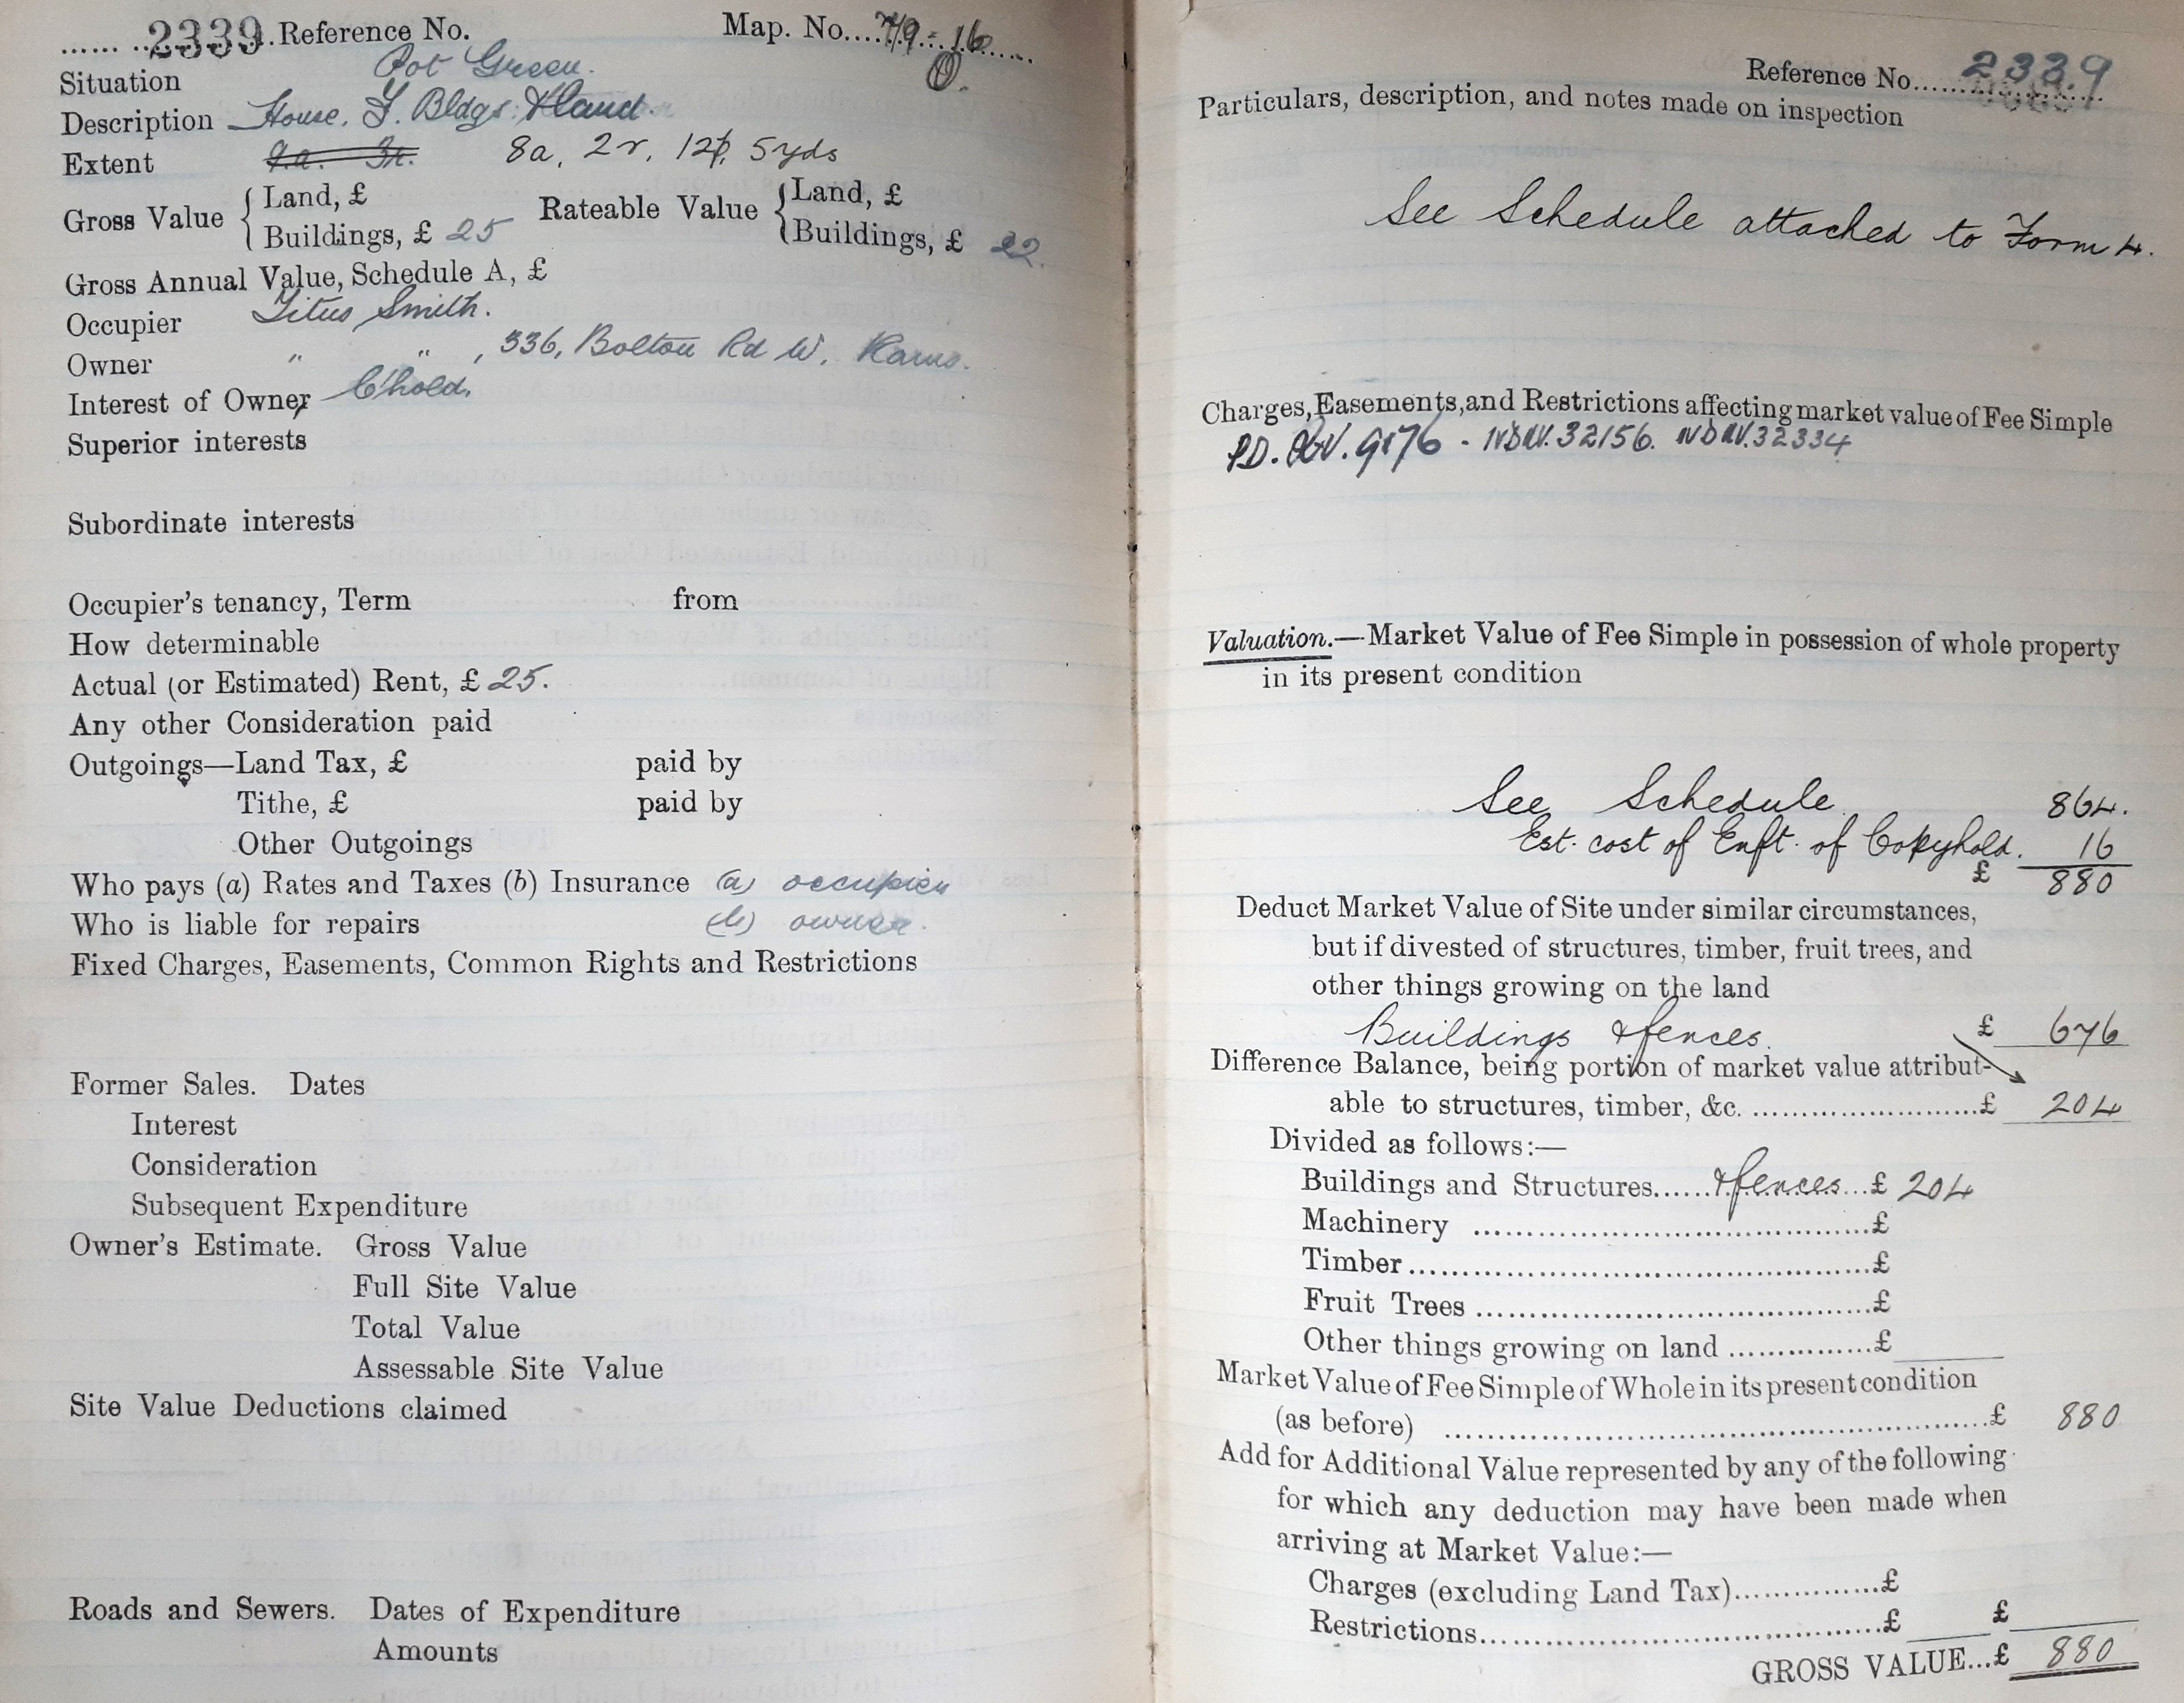 ...... ..2339.. Reference No. Map. No....79-16......
O.
Situation Pot Green.
Description House. F. Bldgs. & land.
Extent 9a. 3r. 8a, 2r, 12p, 5yds
Gross Value { Land, £ Rateable Value { Land, £
Buildings, £ 25 Buildings, £ 22.
Gross Annual Value, Schedule A, £
Occupier Titus Smith.
Owner " " , 336, Bolton Rd W. Rams.
Interest of Owner C'hold.
Superior interests
Subordinate interests
Occupier's tenancy, Term from
How determinable
Actual (or Estimated) Rent, £ 25.
Any other Consideration paid
Outgoings—Land Tax, £ paid by
Tithe, £ paid by
Other Outgoings
Who pays (a) Rates and Taxes (b) Insurance (a) occupier
Who is liable for repairs (b) owner.
Fixed Charges, Easements, Common Rights and Restrictions
Former Sales. Dates
Interest
Consideration
Subsequent Expenditure
Owner's Estimate. Gross Value
Full Site Value
Total Value
Assessable Site Value
Site Value Deductions claimed
Roads and Sewers. Dates of Expenditure
Amounts
Reference No...2339...
Particulars, description, and notes made on inspection
See Schedule attached to Form 4.
Charges, Easements, and Restrictions affecting market value of Fee Simple
P.D. 9176 - 32156. 32334
Valuation.—Market Value of Fee Simple in possession of whole property
in its present condition
See Schedule 864.
Est. cost of Enft. of Copyhold. 16
£ 880
Deduct Market Value of Site under similar circumstances,
but if divested of structures, timber, fruit trees, and
other things growing on the land
Buildings & fences. £ 676
Difference Balance, being portion of market value attribut-
able to structures, timber, &c. ..........................£ 204
Divided as follows:—
Buildings and Structures......& fences...£ 204
Machinery .............................................£
Timber....................................................£
Fruit Trees .............................................£
Other things growing on land ................£
Market Value of Fee Simple of Whole in its present condition
(as before) .............................................................£ 880
Add for Additional Value represented by any of the following
for which any deduction may have been made when
arriving at Market Value:—
Charges (excluding Land Tax)................£
Restrictions.............................................£ £
GROSS VALUE...£ 880